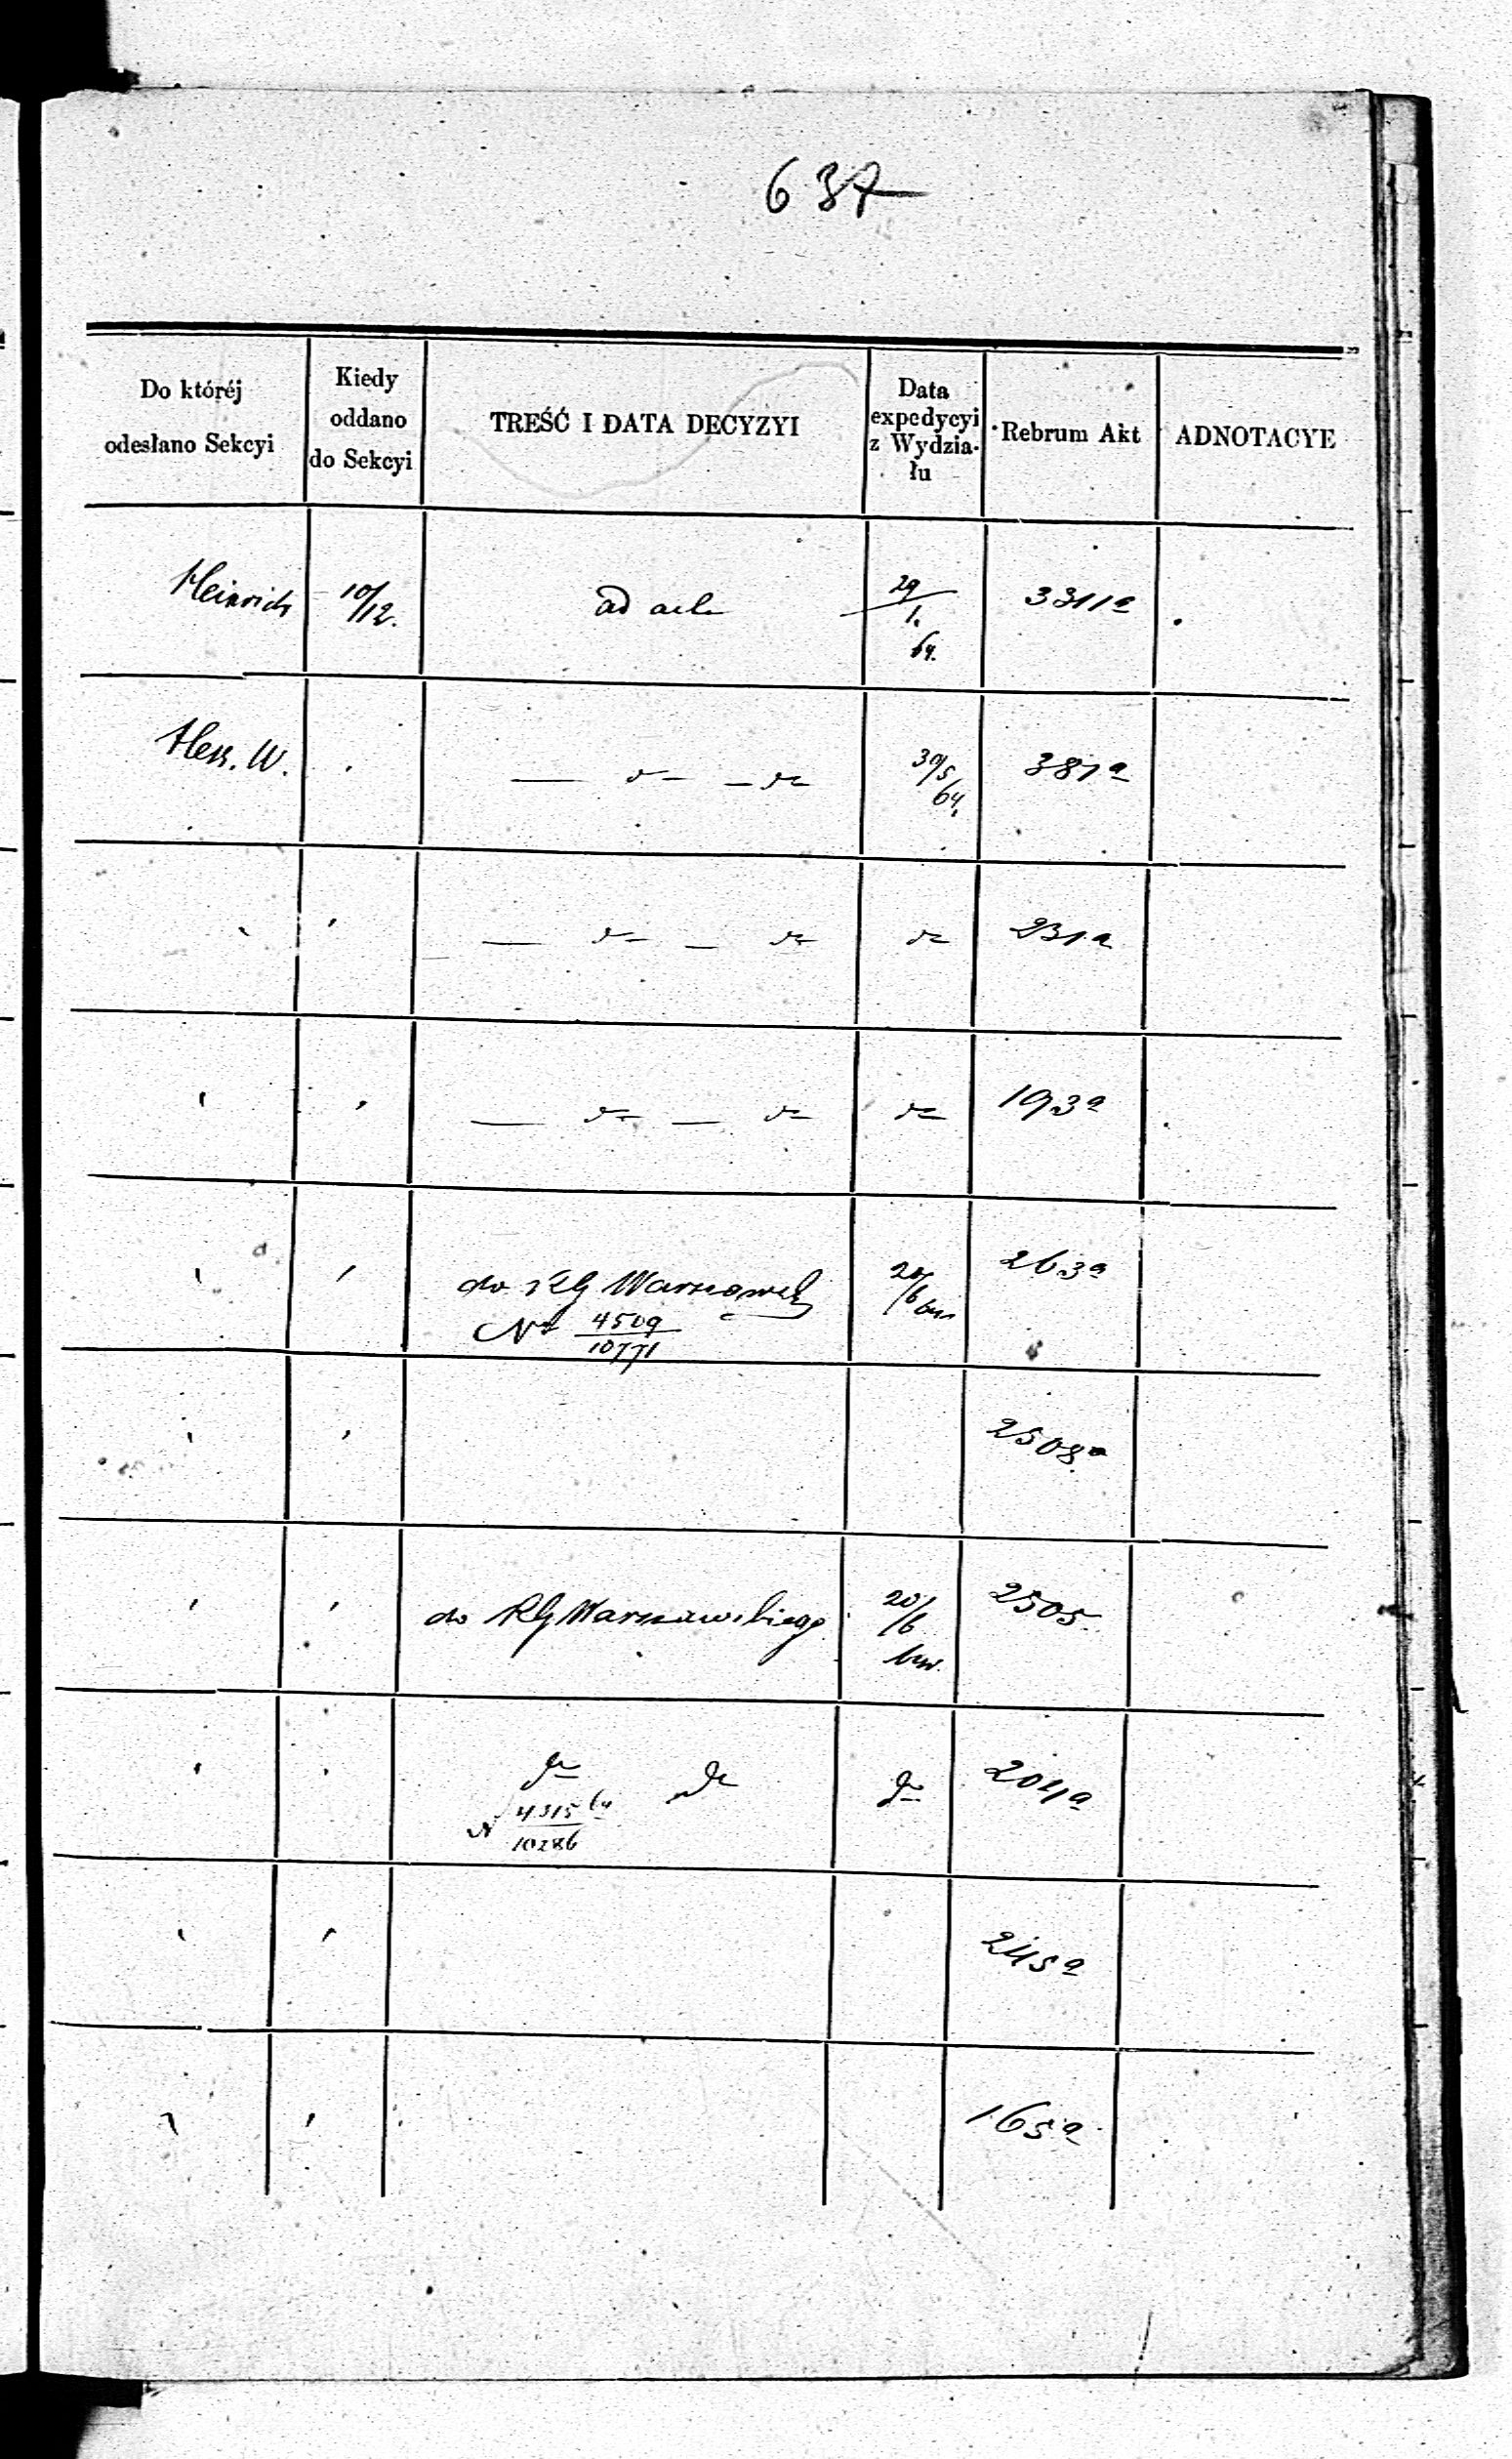 637
Do któréj
odesłano Sekcyi
Kiedy
oddano
do Sekcyi
TREŚĆ I DATA DECYZYI
Data
expedycyi
z Wydzia-
łu
Rebrum Akt
ADNOTACYE
Heinrich 10/12. ad acta 29/1. 64. 3311a
Hess. W. — do — do 30/5 64. 381a
— do — do do 231a
— do — do do 193a
do RG Warszawsk 20/6 263a
No 4509/10771
2508a
do RG Warszawskiego 20/6 2505
do do do 204a
N 4315/10286 64
245a
165a